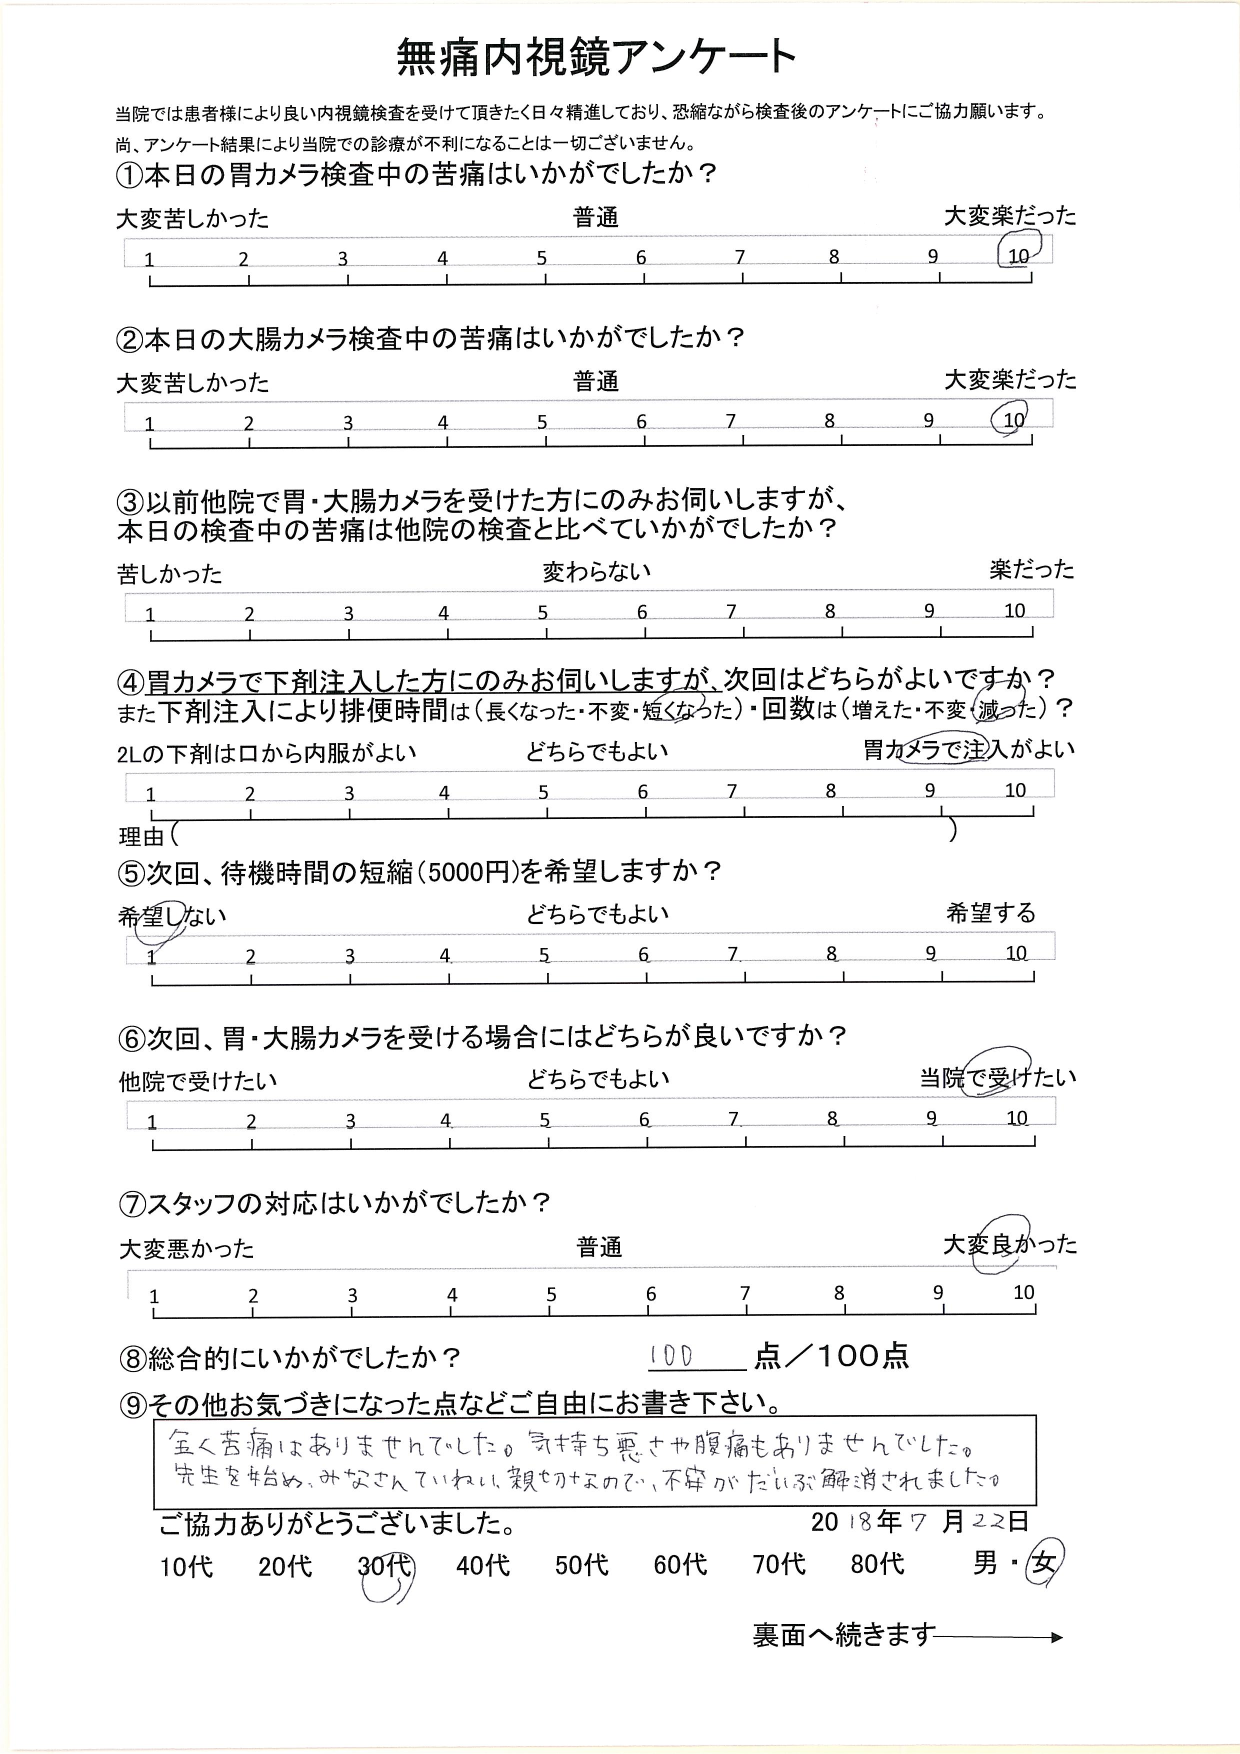 無痛内視鏡アンケート
当院では患者様により良い内視鏡検査を受けて頂きたく日々精進しており、恐縮ながら検査後のアンケートにご協力願います。
尚、アンケート結果により当院での診療が不利になることは一切ございません。
①本日の胃カメラ検査中の苦痛はいかがでしたか？
大変苦しかった 普通 大変楽だった
1 2 3 4 5 6 7 8 9 10
②本日の大腸カメラ検査中の苦痛はいかがでしたか？
大変苦しかった 普通 大変楽だった
1 2 3 4 5 6 7 8 9 10
③以前他院で胃・大腸カメラを受けた方にのみお伺いしますが、
本日の検査中の苦痛は他院の検査と比べていかがでしたか？
苦しかった 変わらない 楽だった
1 2 3 4 5 6 7 8 9 10
④胃カメラで下剤注入した方にのみお伺いしますが、次回はどちらがよいですか？
また下剤注入により排便時間は（長くなった・不変・短くなった）・回数は（増えた・不変・減った）？
2Lの下剤は口から内服がよい どちらでもよい 胃カメラで注入がよい
1 2 3 4 5 6 7 8 9 10
理由（ ）
⑤次回、待機時間の短縮（5000円）を希望しますか？
希望しない どちらでもよい 希望する
1 2 3 4 5 6 7 8 9 10
⑥次回、胃・大腸カメラを受ける場合にはどちらが良いですか？
他院で受けたい どちらでもよい 当院で受けたい
1 2 3 4 5 6 7 8 9 10
⑦スタッフの対応はいかがでしたか？
大変悪かった 普通 大変良かった
1 2 3 4 5 6 7 8 9 10
⑧総合的にいかがでしたか？ 100 点／100点
⑨その他お気づきになった点などご自由にお書き下さい。
全く苦痛はありませんでした。気持ち悪さや腹痛もありませんでした。
先生を始め、みなさんていねい、親切なので、不安がだいぶ解消されました。
ご協力ありがとうございました。 2018年7月22日
10代 20代 30代 40代 50代 60代 70代 80代 男・女
裏面へ続きます